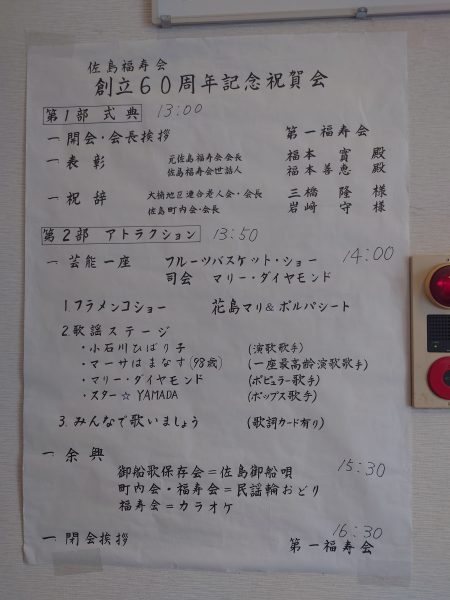 佐島福寿会
創立60周年記念祝賀会
第1部 式典 13:00
一開会・会長挨拶 第一福寿会
一表彰 元佐島福寿会会長 福本 實 殿
佐島福寿会世話人 福本善恵 殿
一祝辞 大楠地区連合老人会・会長 三橋 隆 様
佐島町内会・会長 岩崎 守 様
第2部 アトラクション 13:50
一芸能一座 フルーツバスケット・ショー 14:00
司会 マリー・ダイヤモンド
1.フラメンコショー 花島マリ&ポルパシート
2.歌謡ステージ
・小石川ひばり子 (演歌歌手)
・マーサはまなす(98歳) (一座最高齢演歌歌手)
・マリー・ダイヤモンド (ポピュラー歌手)
・スター☆YAMADA (ポップス歌手)
3.みんなで歌いましょう (歌詞カード有り)
一余興 15:30
御船歌保存会=佐島御船唄
町内会・福寿会=民謡輪おどり
福寿会=カラオケ
16:30
一閉会挨拶 第一福寿会